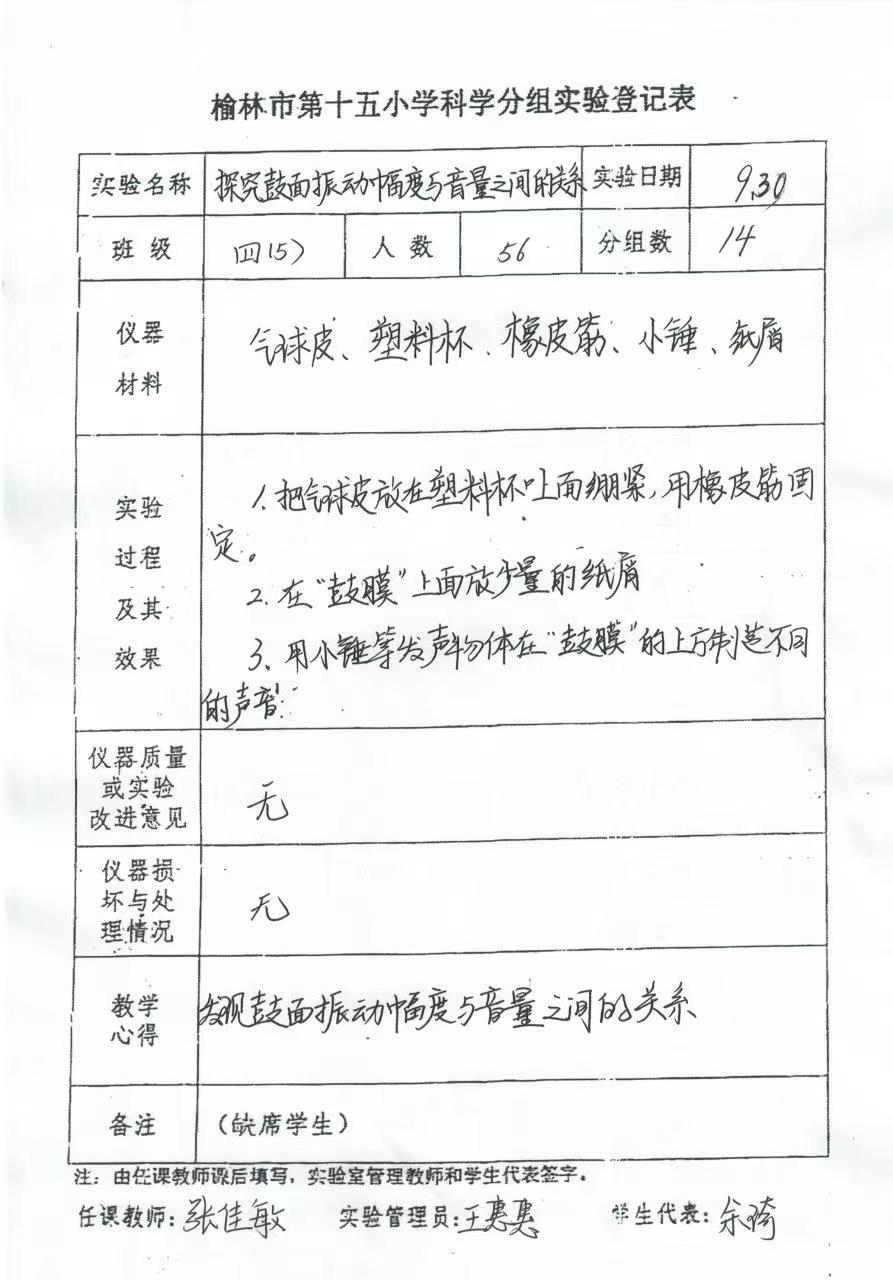 榆林市第十五小学科学分组实验登记表
实验名称 探究鼓面振动幅度与音量之间的关系 实验日期 9.30
班 级 四(5) 人 数 56 分组数 14
仪器
材料
气球皮、塑料杯、橡皮筋、小锤、纸屑
实验
过程
及其
效果
1.把气球皮放在塑料杯口上面绷紧,用橡皮筋固
定。
2.在“鼓膜”上面放少量的纸屑
3、用小锤等发声物体在“鼓膜”的上方制造不同
的声音.
仪器质量
或实验
改进意见
无
仪器损
坏与处
理情况
无
教学
心得
发现鼓面振动幅度与音量之间的关系
备注 (缺席学生)
注:由任课教师课后填写,实验室管理教师和学生代表签字。
任课教师:张佳敏 实验管理员:王惠惠 学生代表:余琦